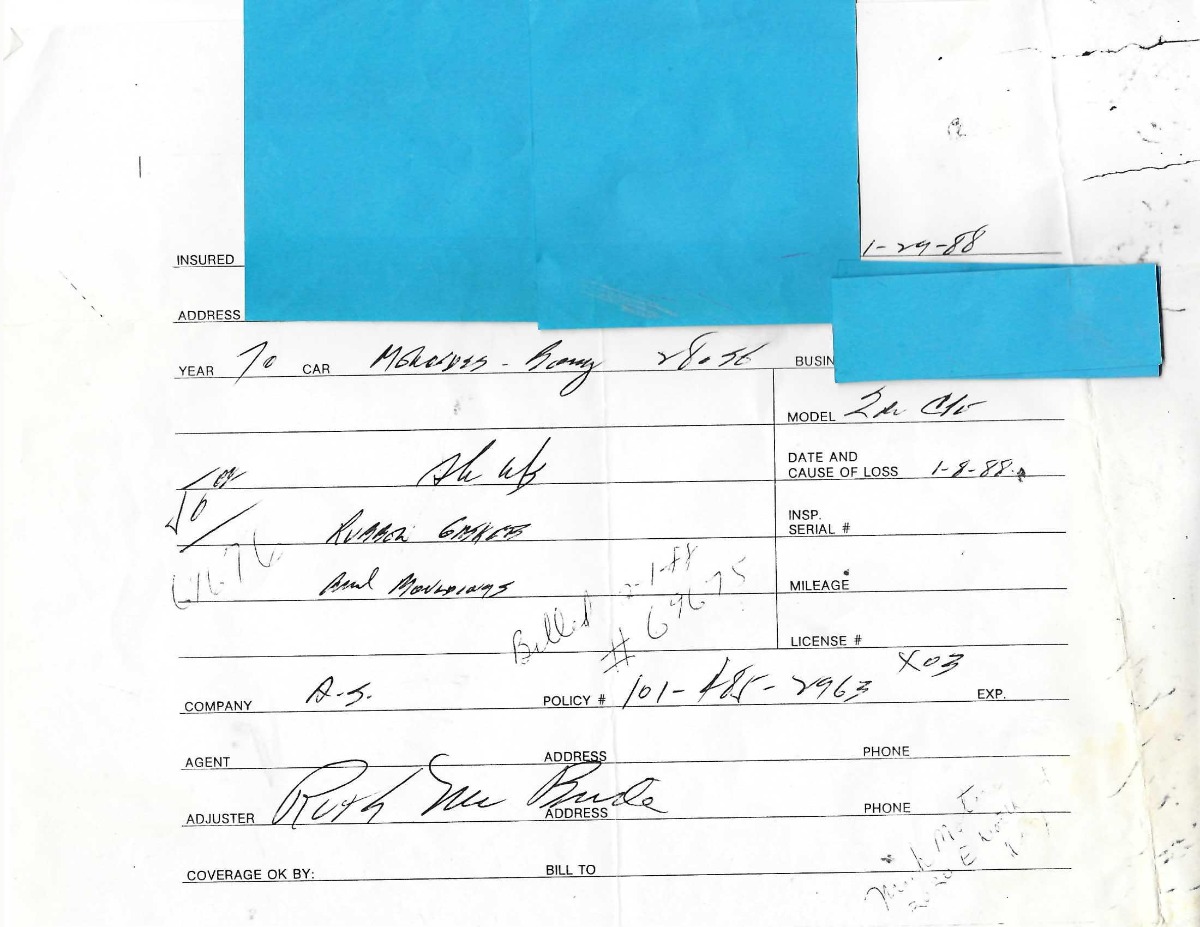 1-29-88
INSURED
ADDRESS
YEAR 70 CAR Mercedes - Benz 280SE BUSIN
MODEL 2DR Cpe
DATE AND
CAUSE OF LOSS 1-8-88
INSP.
SERIAL #
Rubber Gaskets
and Mouldings
MILEAGE
Billed 2-1-88
# 69675
LICENSE #
X03
COMPANY A-S. POLICY # 101-485-2963 EXP.
AGENT ADDRESS PHONE
ADJUSTER Ruth Mc Bride ADDRESS PHONE
COVERAGE OK BY: BILL TO